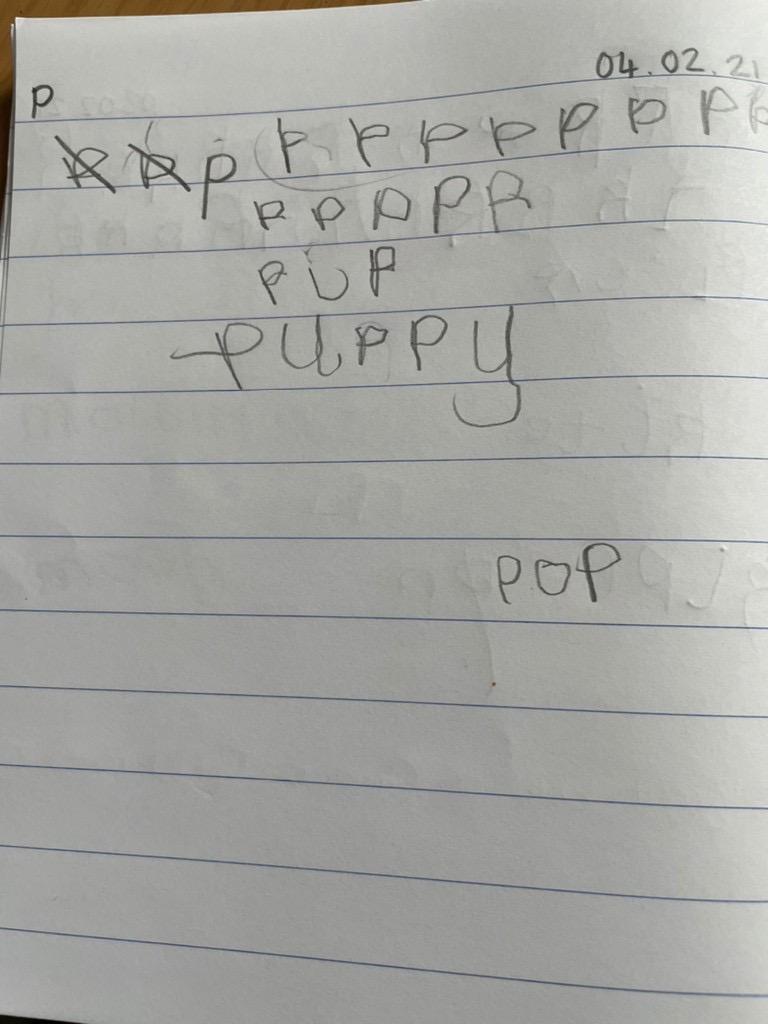 04.02.21
p
p p p p p p p p p
p p p p p
pup
puppy
pop